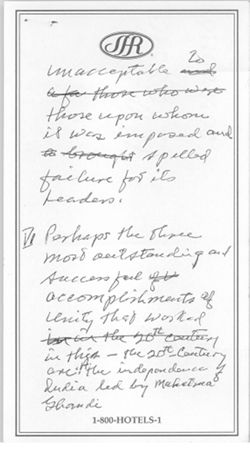 SHR
to
unacceptable and
a for those who were
those upon whom
it was imposed and
to brought spelled
failure for its
Leaders.
IV Perhaps the three
most outstanding and
successful of
accomplishments of
Unity that worked
in the 20th century
in high - the 20th Century
are: the independence of
India led by Mahatma
Ghandi
1-800-HOTELS-1